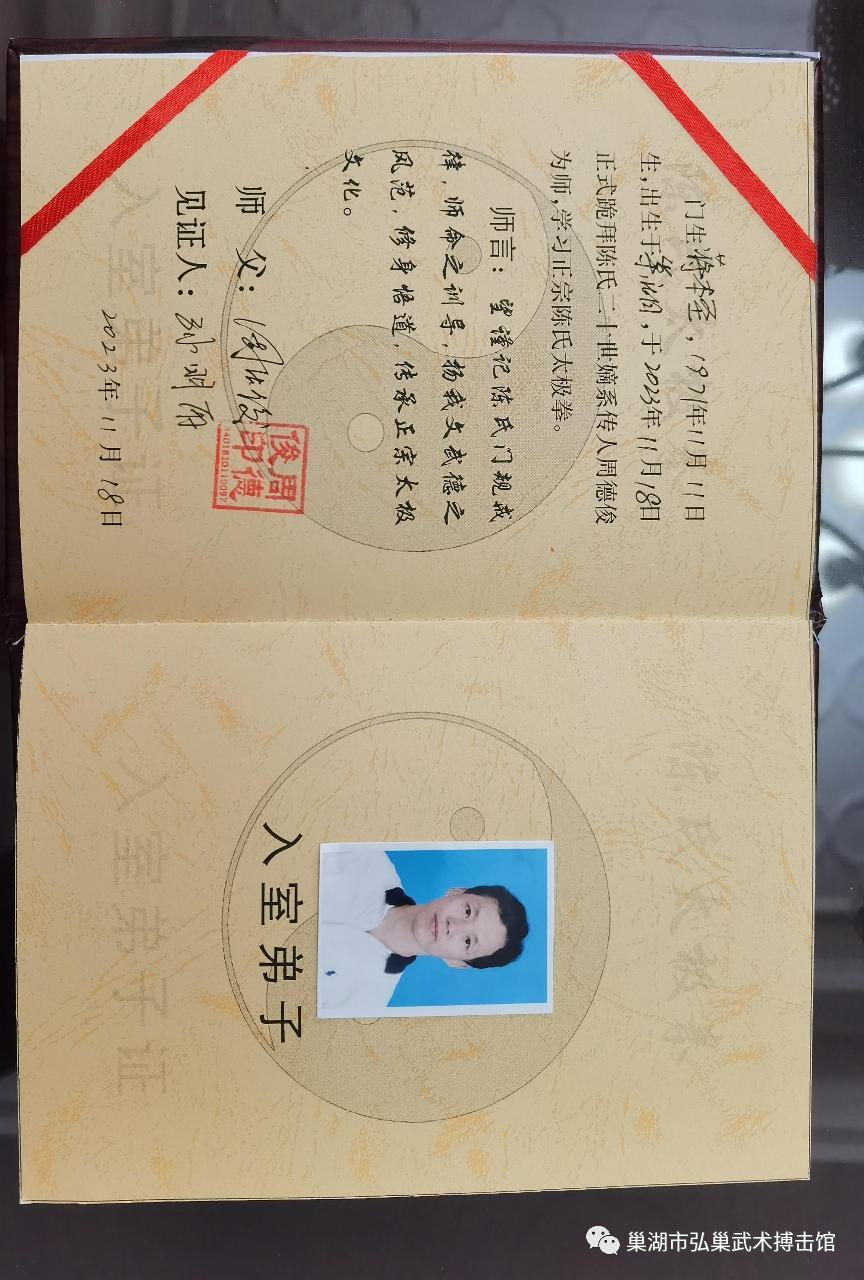 门生蒋本圣，1971年11月11日
生，出生于巢湖，于2023年11月18日
正式跪拜陈氏二十世嫡系传人周德俊
为师，学习正宗陈氏太极拳。
师言：望谨记陈氏门规戒
律，师命之训导，扬我文武德之
风范，修身悟道，传承正宗太极
文化。
师 父：周德俊
周德俊印
见证人：
2023年11月18日
入室弟子证
陈氏太极拳
入室弟子
入室弟子证
巢湖市弘巢武术搏击馆